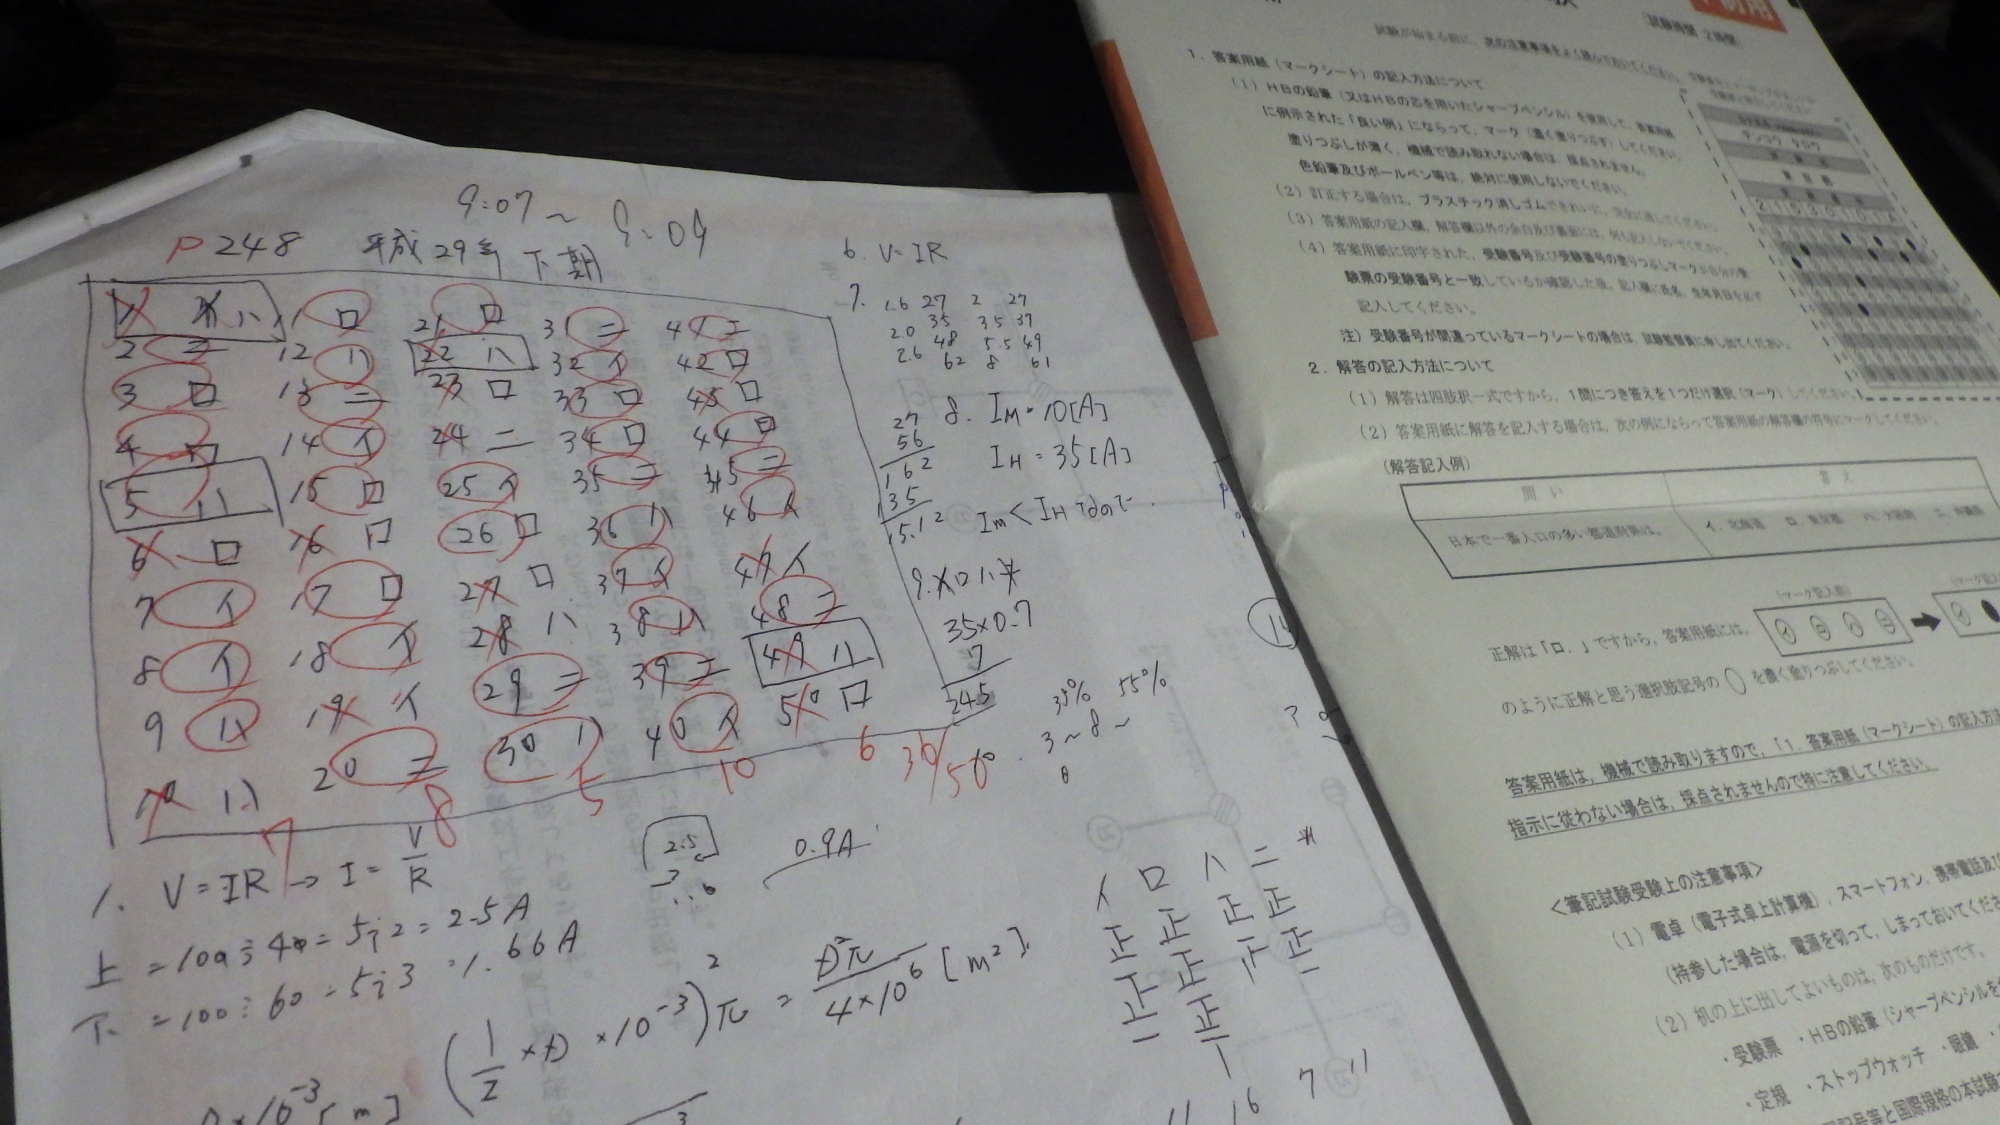 9:07~9:09
P248 平成29年下期
1 イハ 11 ロ 21 ロ 31 ニ 41 ニ
2 ニ 12 ハ 22 ハ 32 イ 42 ロ
3 ロ 13 ニ 23 ロ 33 ロ 43 ロ
4 ロ 14 イ 24 ニ 34 ロ 44 ロ
5 ハ 15 ロ 25 イ 35 ニ 45 ニ
6 ロ 16 ロ 26 ロ 36 ハ 46 イ
7 イ 17 ロ 27 ロ 37 イ 47 イ
8 イ 18 イ 28 ハ 38 ハ 48 ニ
9 ハ 19 イ 29 ニ 39 ニ 49 ハ
10 ハ 20 ニ 30 ハ 40 イ 50 ロ
7 8 5 10 6 36/50
6. V=IR
7.
1.6 27 2 27
2.0 35 3.5 37
2.6 48 5.5 49
62 8 61
27
56
162
135
15.12
8. IM=10[A]
IH=35[A]
Im<IHなので
9.
35×0.7
7
24.5
35% 55%
3~8~
1. V=IR→I=V/R
上=100÷40=5÷2=2.5A
下=100÷60=5÷3=1.66A
2.5
0.9A
(1/2×D×10-3)2π=D2π/4×106[m2]
イ ロ ハ ニ *
正 正 正 正
11 16 7 11
(試験時間 2時間)
試験が始まる前に、次の注意事項をよく読んでおいてください。
1. 答案用紙(マークシート)の記入方法について
(1) HBの鉛筆(又はHBの芯を用いたシャープペンシル)を使用して、答案用紙
に例示された「良い例」にならって、マーク(濃く塗りつぶす)してください。
塗りつぶしが薄く、機械で読み取れない場合は、採点されません。
色鉛筆及びボールペン等は、絶対に使用しないでください。
(2) 訂正する場合は、プラスチック消しゴムできれいに、完全に消してください。
(3) 答案用紙の記入欄、解答欄以外の余白及び裏面には、何も記入しないでください。
(4) 答案用紙に印字された、受験番号及び受験番号の塗りつぶしマークが自分の受
験票の受験番号と一致しているか確認した後、記入欄に氏名、生年月日を必ず
記入してください。
注) 受験番号が間違っているマークシートの場合は、試験監督員に申し出てください。
2. 解答の記入方法について
(1) 解答は四肢択一式ですから、1問につき答えを1つだけ選択(マーク)してください。
(2) 答案用紙に解答を記入する場合は、次の例にならって答案用紙の解答欄の符号にマークしてください。
(解答記入例)
問い 答え
日本で一番人口の多い都道府県は。 イ. 北海道 ロ. 東京都 ハ. 大阪府 ニ. 沖縄県
(マーク記入前)
イ ロ ハ ニ
正解は「ロ.」ですから、答案用紙には、
のように正解と思う選択肢記号の を濃く塗りつぶしてください。
答案用紙は、機械で読み取りますので、「1. 答案用紙(マークシート)の記入方法
指示に従わない場合は、採点されませんので特に注意してください。
<筆記試験受験上の注意事項>
(1) 電卓(電子式卓上計算機)、スマートフォン、携帯電話及び
(持参した場合は、電源を切って、しまっておいてくださ
(2) 机の上に出してよいものは、次のものだけです。
・受験票 ・HBの鉛筆(シャープペンシルを
・定規 ・ストップウォッチ ・眼鏡